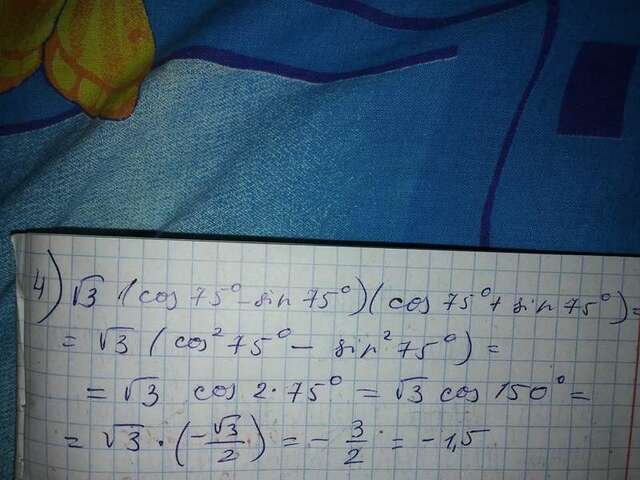 4) √3 (cos 75° - sin 75°)(cos 75° + sin 75°) =
= √3 (cos²75° - sin²75°) =
= √3 cos 2·75° = √3 cos 150° =
= √3 · (-√3/2) = - 3/2 = -1,5